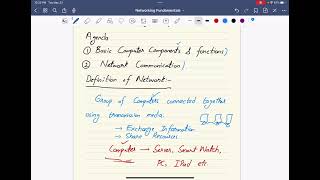 12:23 PM Tue Dec 27
Networking Fundamentals
Agenda
① Basic Computer Components & functions
② Network Communication
Definition of Network:-
Group of Computers connected together
using transmission media.
→ Exchange Information
→ Share Resources
Computer → Server, Smart Watch,
PC, IPad etc.